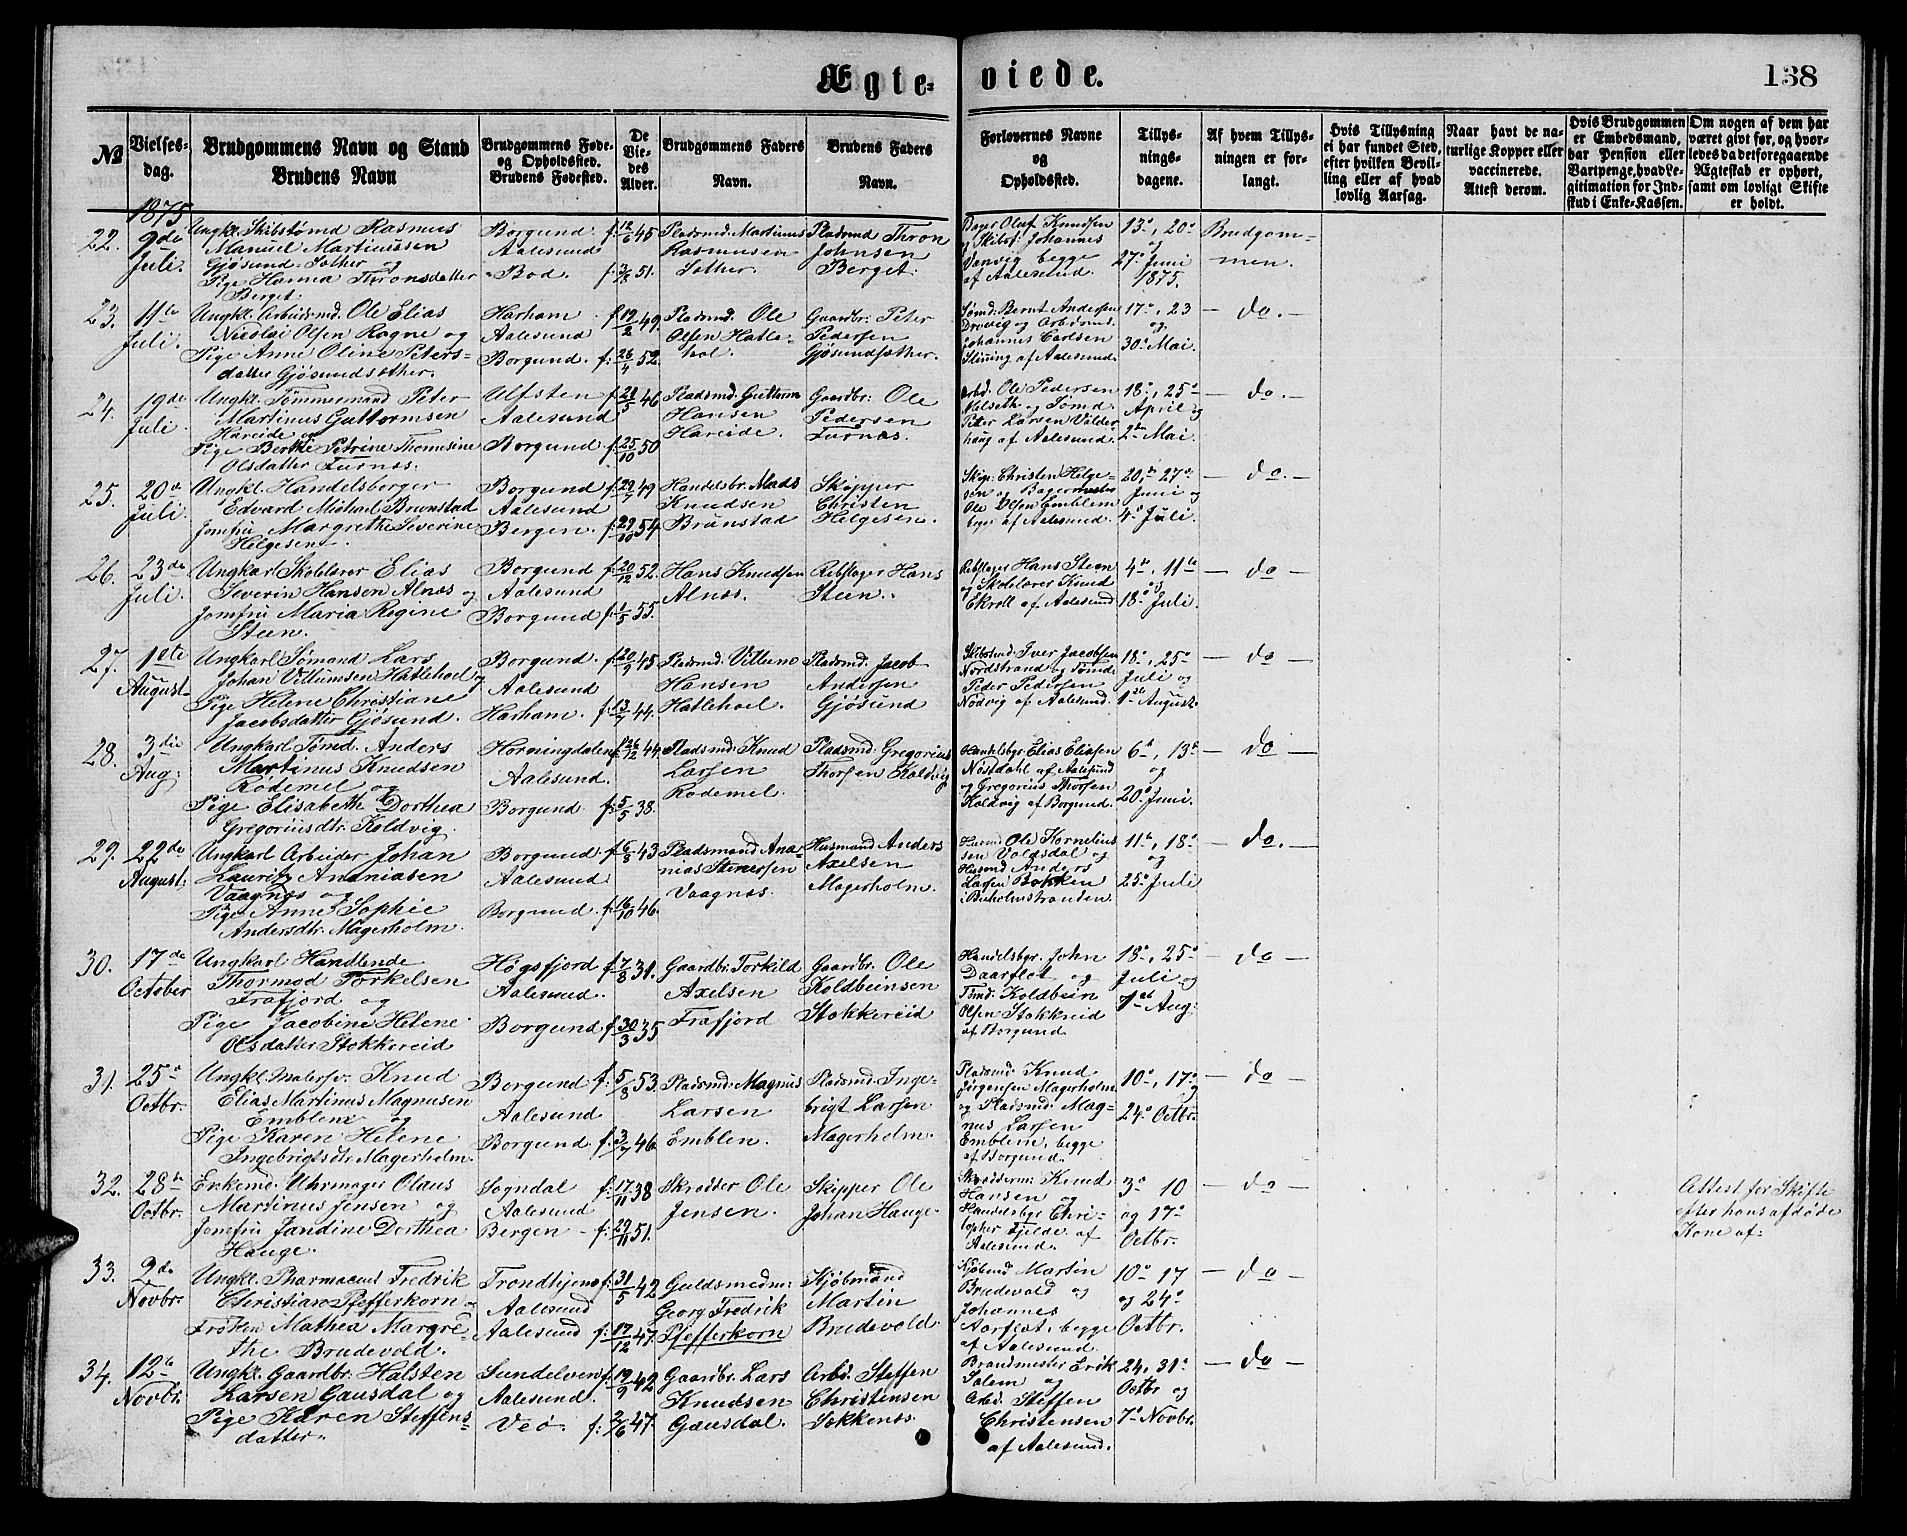 Ægte-
viede.
138
№
Vielses-
dag.
Brudgommens Navn og Stand
Brudens Navn
Brudgommens Føde-
og Opholdssted.
Brudens Fødested.
De
Vie-
des
Alder.
Brudgommens Faders
Navn.
Brudens Faders
Navn.
Forlovernes Navne
og
Opholdssted.
Tillys-
nings-
dagene.
Af hvem Tillys-
ningen er for-
langt.
Hvis Tillysning
ei har fundet Sted,
efter hvilken Bevil-
ling eller af hvad
lovlig Aarsag.
Naar havt de na-
turlige Kopper eller
vaccinerede.
Attest derom.
Hvis Brudgommen
er Embedsmand,
har Pension eller
Vartpenge, hvad Le-
gitimation for Ind-
skud i Enke-Kassen.
Om nogen af dem har
været givt før, og hvor-
ledes da det foregaaende
Ægteskab er ophørt,
samt om lovligt Skifte
er holdt.
1875
22.
9de
Juli.
Ungkl. Skibstømd Rasmus
Manuel Martinussen
Gjøsund Sæther og
Pige Hanna Thronsdatter
Berget.
Borgund.
Aalesund
Bod.
f. 12/6 45
f. 3/8 51.
Pladsmd. Martinus
Rasmussen
Sæther.
Pladsmd Thron
Johnsen
Berget.
Bager Oluf Knudsen
og Skibsf. Johannes
Vanvig begge
af Aalesund.
13de, 20de
og
27de Juni
1875.
Brudgom-
men.
23.
11te
Juli.
Ungkl. Arbeidsmd. Ole Elias
Nicolai Olsen Rogne og
Pige Anne Oline Peters-
datter Gjøsundsæther.
Harham
Aalesund
Borgund
f. 19/2 49.
f. 26/4 52.
Pladsmd. Ole
Olsen Hatle-
hol.
Gaardbr. Peter
Pedersen
Gjøsundsæther.
Tømd. Bernt Andersen
Drøvig og Arbdsmd.
Johannes Carlsen
Slinning af Aalesund.
17de, 23
og
30de Mai.
— do. —
24.
19de
Juli.
Ungkl. Tømmermand Peter
Martinus Guttormsen
Hareide og
Pige Berthe Petrine Thomesine
Olsdatter Furnæs.
Ulfsten
Aalesund
Borgund
f. 28/5 46
f. 25/10 50
Pladsmd. Guttorm
Hansen
Hareide.
Gaardbr. Ole
Pedersen
Furnæs.
Arbd. Ole Pedersen
Melseth og Tømd.
Peter Larsen Valder
haug af Aalesund.
18de, 25de
April og
2den Mai.
— do. —
25.
20de
Juli.
Ungkl. Handelsborger
Edvard Michael Brunstad
Jomfru Margrethe Severine
Helgesen.
Borgund
Aalesund
Bergen
f. 29/7 49
f. 29/10 54.
Handelsbr. Mads
Knudsen
Brunstad
Skipper
Christen
Helgesen.
Skip. Christen Helge-
sen og Bagermester
Ole Olsen Emblem
begge af Aalesund.
20de, 27de
Juni og
4de Juli.
— do. —
26.
23de
Juli.
Ungkarl Skolelærer Elias
Severin Hansen Alnæs og
Jomfru Maria Regine
Steen.
Borgund
Aalesund
Borgund
f. 20/12 52.
f. 1/5 55.
Hans Knudsen
Alnæs.
Rebslager Hans
Steen.
Rebslager Hans Steen
og Skolelærer Knud
Ekroll af Aalesund
4de, 11te
og
18de Juli.
— do —
27.
1ste
August
Ungkarl Tømand Lars
Johan Villumsen Hatlehoel og
Pige Helene Christiane
Jacobsdatter Gjøsund.
Borgund.
Aalesund
Harham.
f. 20/9 45
f. 13/7 44.
Pladsmd. Villum
Hansen
Hatlehoel.
Pladsmd. Jacob
Andersen
Gjøsund
Iver Jacobsen
Nordstrand og Tømd.
Peder Pedersen
Nødvig af Aalesund.
18de, 25de
Juli og
1ste August.
— do —
28.
3die
Aug:
Ungkarl Tømd. Anders
Martinus Knudsen
Rødemel og
Pige Elisabeth Dorthea
Gregoriusdtr. Koldvig.
Horningdalen
Aalesund.
Borgund.
f. 26/12 44.
f. 5/5 38.
Pladsmd. Knud
Larsen
Rødemel.
Pladsmd. Gregorius
Thorsen Koldvig
Handelsbgr. Elias Eliasen
Nøstdahl af Aalesund
og Gregorius Thorsen
Koldvig af Borgund.
6te, 13de
og
20de Juni.
— do —
29.
22de
August:
Ungkarl Arbeider Johan
Lauritz Ananiasen
Vaagnæs og
Pige Anne Sophie
Andersdtr. Magerholm.
Borgund.
Aalesund
Borgund.
f. 6/8 43
f. 16/10 46.
Pladsmand Ana-
nias Stenersen
Vaagnæs.
Husmand Anders
Axelsen
Magerholm.
Husmd Ole Kornelius
sen Valdsdal og
Husmd Anders
Larsen Bakken
i Buholmstranden.
11te, 18de
og
25de Juli
— do. —
30.
17de
October
Ungkarl Handlende
Thormod Torkelsen
Frafjord og
Pige Jacobine Helene
Olsdatter Stokkereid
Høgsfjord
Aalesund.
Borgund
f. 7/8 31.
f. 30/3 35
Gaardbr. Torkild
Axelsen
Frafjord
Gaardbr. Ole
Koldbeinsen
Stokkereid
Handelsbgr. John
Daarflot og
Tømd. Koldbein
Olsen Stokkreid
af Borgund
18de, 25de
Juli og
1ste Aug:
— do —
31.
25de
Octbr.
Ungkl. Malersv. Knud
Elias Martinus Magnusen
Emblem og
Pige Karen Helene
Ingebrigtsdtr. Magerholm.
Borgund
Aalesund
Borgund.
f. 5/8 53.
f. 3/7 46.
Pladsmd. Magnus
Larsen
Emblen.
Pladsmd. Inge-
brigt Larsen
Magerholm.
Pladsmd. Knud
Jørgensen Magerholm
og Pladsmd. Mag-
nus Larsen
Emblem, begge
af Borgund.
10de, 17de
og
24de Octbr.
— do —
32.
28de
Octbr.
Enkemd. Uhrmager Olaus
Martinus Jensen og
Jomfru Jandine Dorthea
Hauge.
Sogndal
Aalesund
Bergen
f. 17/11 38
f. 29/11 51.
Skrædder Ole
Jensen.
Skipper Ole
Johan Hauge.
Skrædderm. Knud
Hansen og
Handelsbgr Chri-
stopher Fjelde af
Aalesund.
3de 10
og 17de
Octbr.
— do —
Attest for Skifte
efter hans afdøde
Kone af-
33.
2de
Novbr.
Ungkl. Pharmaceut Fredrik
Christian Pfefferkorn
Frøken Mathea Margre-
the Brudevold.
Trondhjem
Aalesund
Aalesund
f. 31/5 42
f. 19/12 47.
Guldsmedm:
Georg Fredrik
Pfefferkorn
Kjøbmand
Martin
Brudevold
Kjøbmd Martin
Brudevold og
Johannes
Aarflot. begge
af Aalesund.
10de 17
og 24de
Octbr.
— do —
34.
12te
Novbr.
Ungkl. Gaardbr. Halsten
Larsen Gausdal og
Pige Karen Steffens-
datter.
Sundelven
Aalesund.
Veø.
f. 19/9 42
f. 2/6 47.
Gaardbr. Lars
Knudsen
Gausdal.
Arbd. Steffen
Christensen
Sokkenæs.
Brandmester Erik
Salem og
Arbd. Steffen
Christensen
af Aalesund.
24, 31de
Octbr og
7de Novbr.
— do —